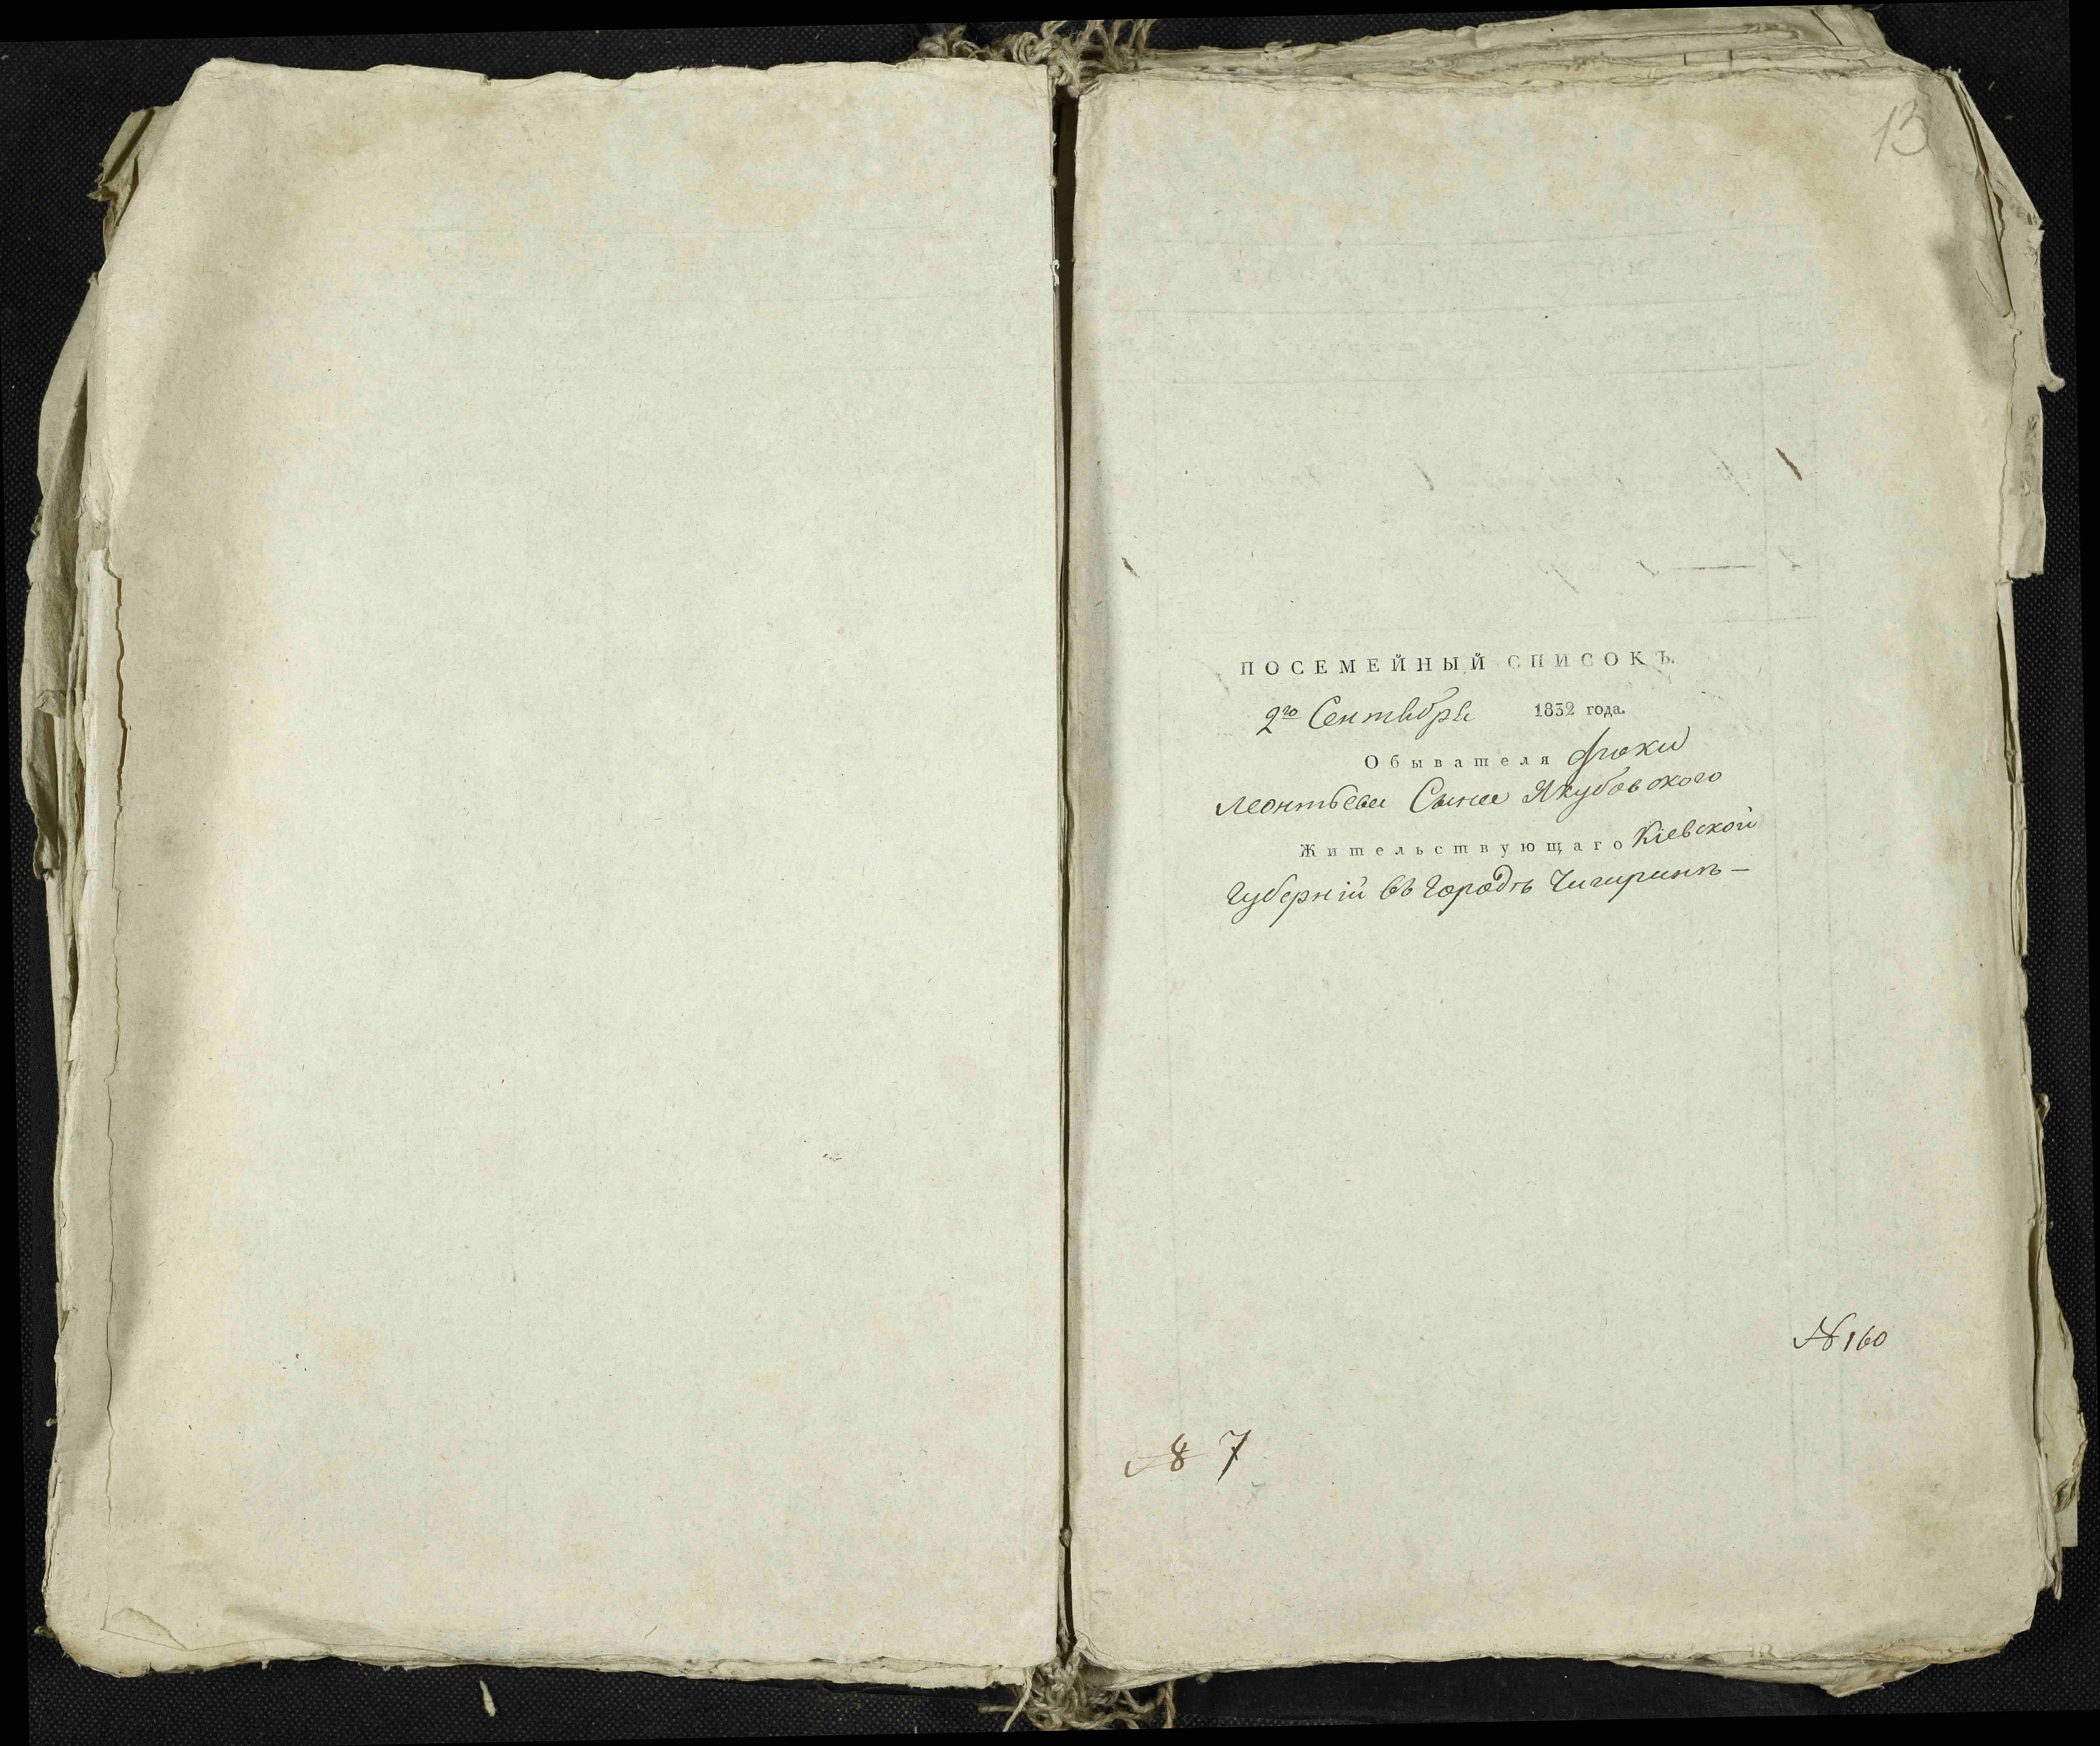 13
ПОСЕМЕЙНЫЙ СПИСОКЪ.
2го Сентября 1832 года.
Обывателя Луки
Леонтьева Сына Якубовского
Жительствующаго Кіевской
Губерніи въ городѣ Чигиринѣ —
№ 160
№ 7